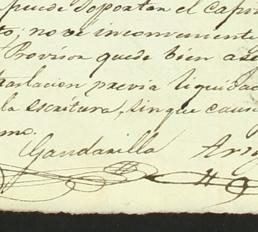 puede soportar el capi
to; no ve inconveniente
Provisor quede bien ase
tanlacion previa liquidac
la escritura, sin que caun
mo.
Gandarilla Arr